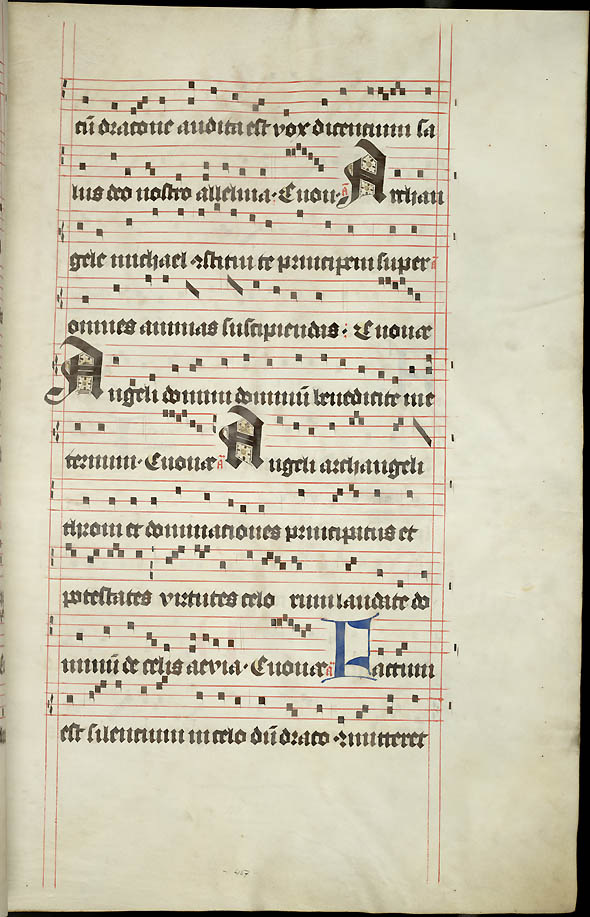 cū dracone audita est vox dicentium sa
lus deo nostro alleluia. Euouae ā Archan
gele michael constitui te principem super ā
omnes animas suscipiendas. Euouae
Angeli domini dominū benedicite in e
ternum. Euouae ā Angeli archangeli
throni et dominationes principatus et
potestates virtutes celo rum laudate do
minū de celis aevia. Euouae ā Factum
est silentium in celo dū draco committeret